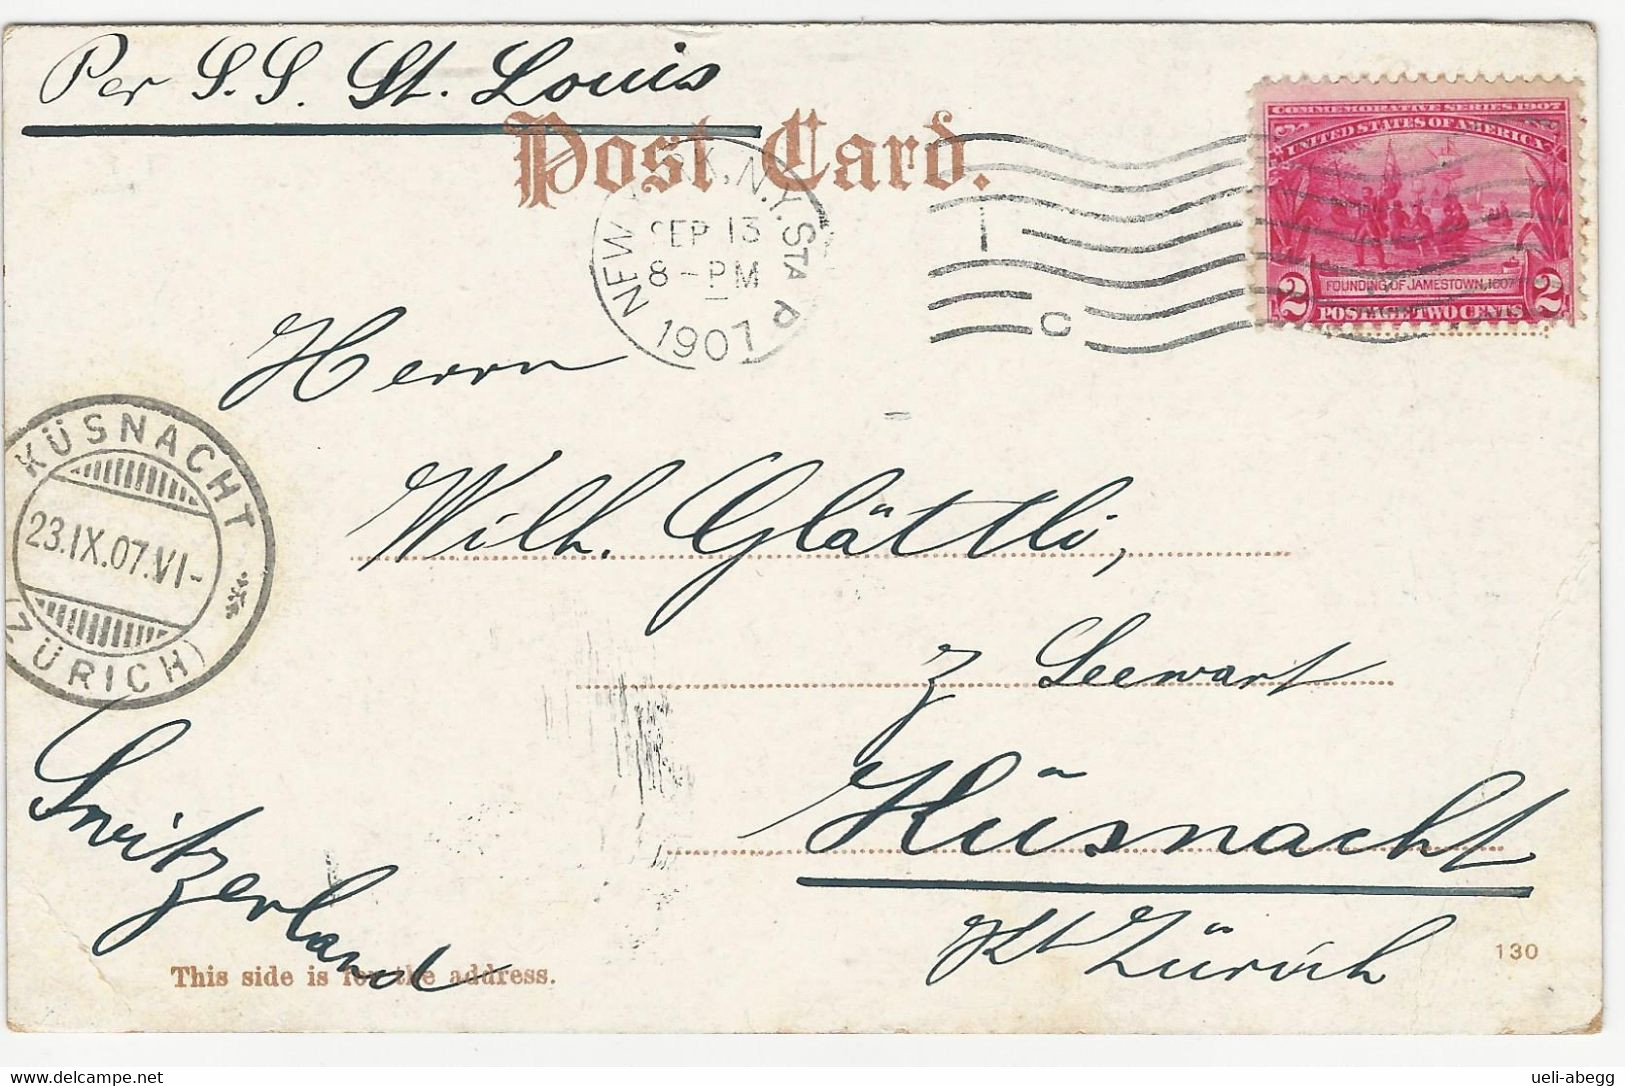 Per S.S. St. Louis
Post Card.
NEW YORK, N.Y. STA P
SEP 13
8-PM
1907
C
COMMEMORATIVE SERIES 1907
UNITED STATES OF AMERICA
FOUNDING OF JAMESTOWN, 1607
2 POSTAGE TWO CENTS 2
Herrn
Wilh. Glättli,
z Seewart
Küsnacht
Kt Zürich
Switzerland
KÜSNACHT
23.IX.07.VI-
(ZÜRICH)
This side is for the address.
130
www.delcampe.net
ueli-abegg